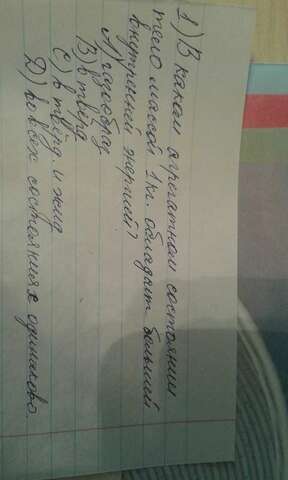 1) В каком агрегатном состоянии
тело массой 1 кг. обладает большей
внутренней энергией?
А) газообраз
В) в твёрд
С) в твёрд. и жид
Д) во всех состояниях одинаково.